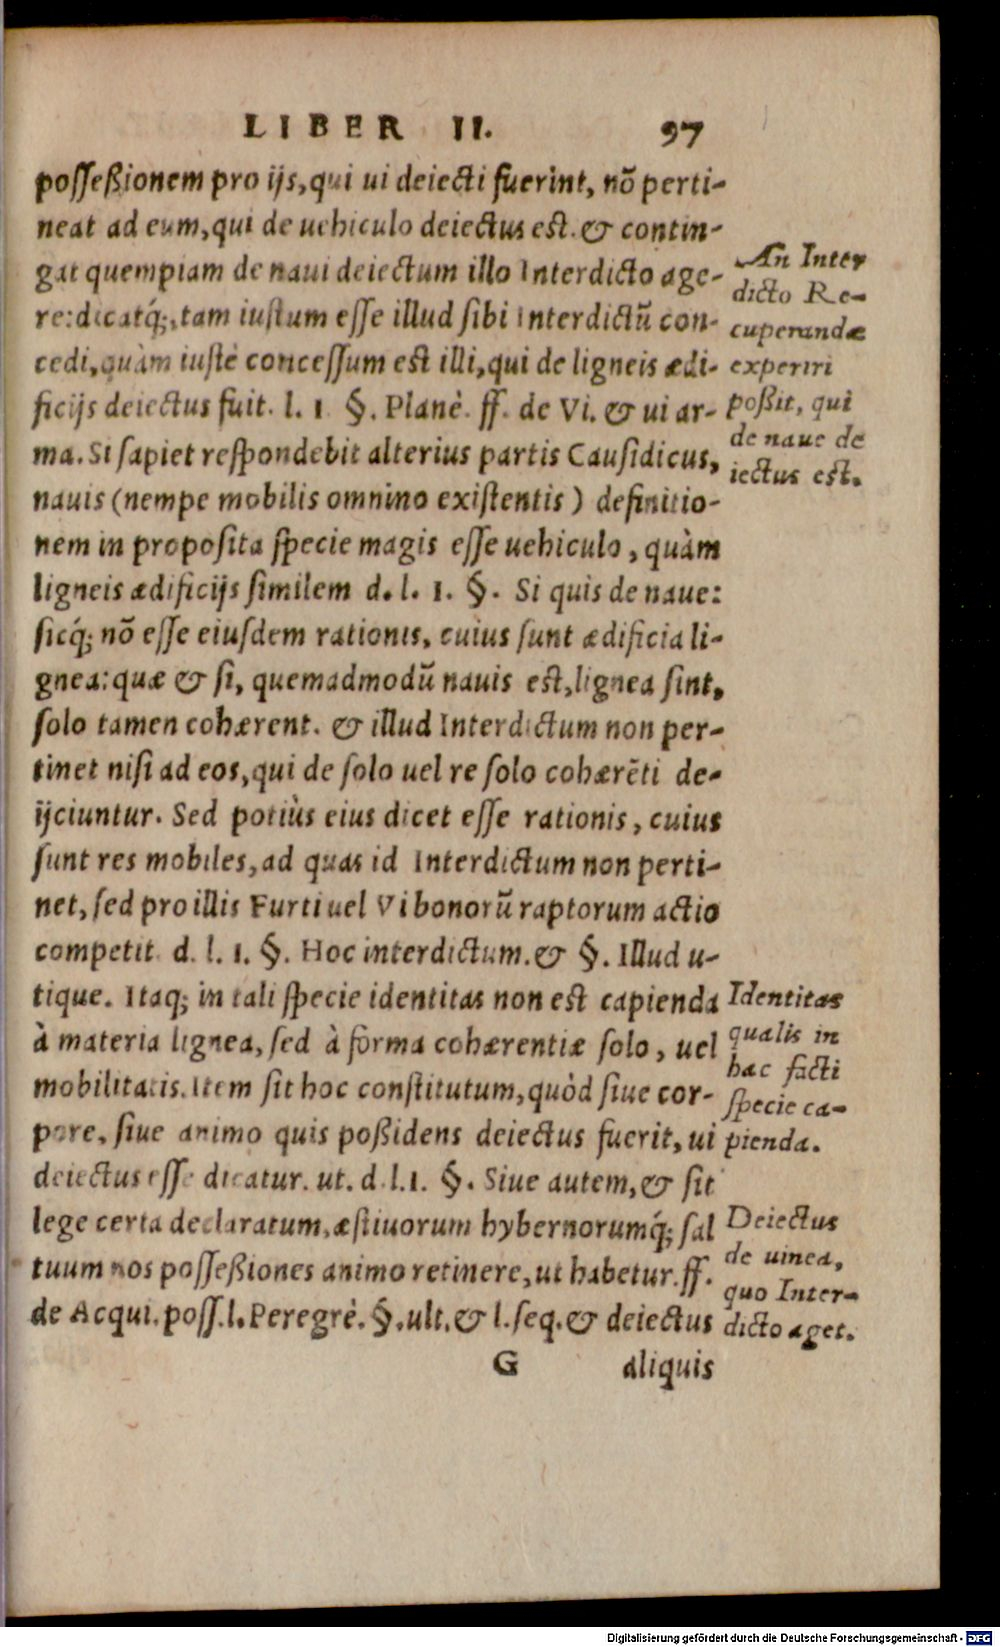 LIBER II. 97
poſſeßionem pro ijs, qui ui deiecti fuerint, nõ perti-
neat ad eum, qui de uehiculo deiectus est. & contin-
gat quempiam de naui deiectum illo Interdicto age-
re: dicatq́;, tam iustum eſſe illud ſibi Interdictũ con-
cedi, quàm iuſtè conceſſum est illi, qui de ligneis ædi-
ficijs deiectus fuit. l. 1 §. Planè. ff. de Vi. & ui ar-
ma. Si ſapiet reſpondebit alterius partis Cauſidicus,
nauis (nempe mobilis omnino exiſtentis) definitio-
nem in propoſita ſpecie magis eſſe uehiculo, quàm
ligneis ædificijs ſimilem d. l. 1. §. Si quis de naue:
ſicq́; nõ eſſe eiuſdem rationis, cuius ſunt ædificia li-
gnea: quæ & ſi, quemadmodũ nauis est, lignea ſint,
ſolo tamen cohærent. & illud Interdictum non per-
tinet niſi ad eos, qui de ſolo uel re ſolo cohærẽti de-
ijciuntur. Sed potiùs eius dicet eſſe rationis, cuius
ſunt res mobiles, ad quas id Interdictum non perti-
net, ſed pro illis Furti uel Vi bonorũ raptorum actio
competit d. l. 1. §. Hoc interdictum. & §. Illud u-
tique. Itaq; in tali ſpecie identitas non est capienda
à materia lignea, ſed à forma cohærentiæ ſolo, uel
mobilitatis. Item ſit hoc conſtitutum, quòd ſiue cor-
pore, ſiue animo quis poßidens deiectus fuerit, ui
deiectus eſſe dicatur. ut. d. l. 1. §. Siue autem, & ſit
lege certa declaratum, æſtiuorum hybernorumq́; ſal
tuum nos poſſeßiones animo retinere, ut habetur. ff.
de Acqui. poſſ. l. Peregrè. §. ult. & l. ſeq. & deiectus
G aliquis
An Inter
dicto Re-
cuperandæ
experiri
poßit, qui
de naue de
iectus est.
Identitas
qualis in
hac facti
ſpecie ca-
pienda.
Deiectus
de uinea,
quo Inter-
dicto aget.
Digitalisierung gefördert durch die Deutsche Forschungsgemeinschaft - DFG